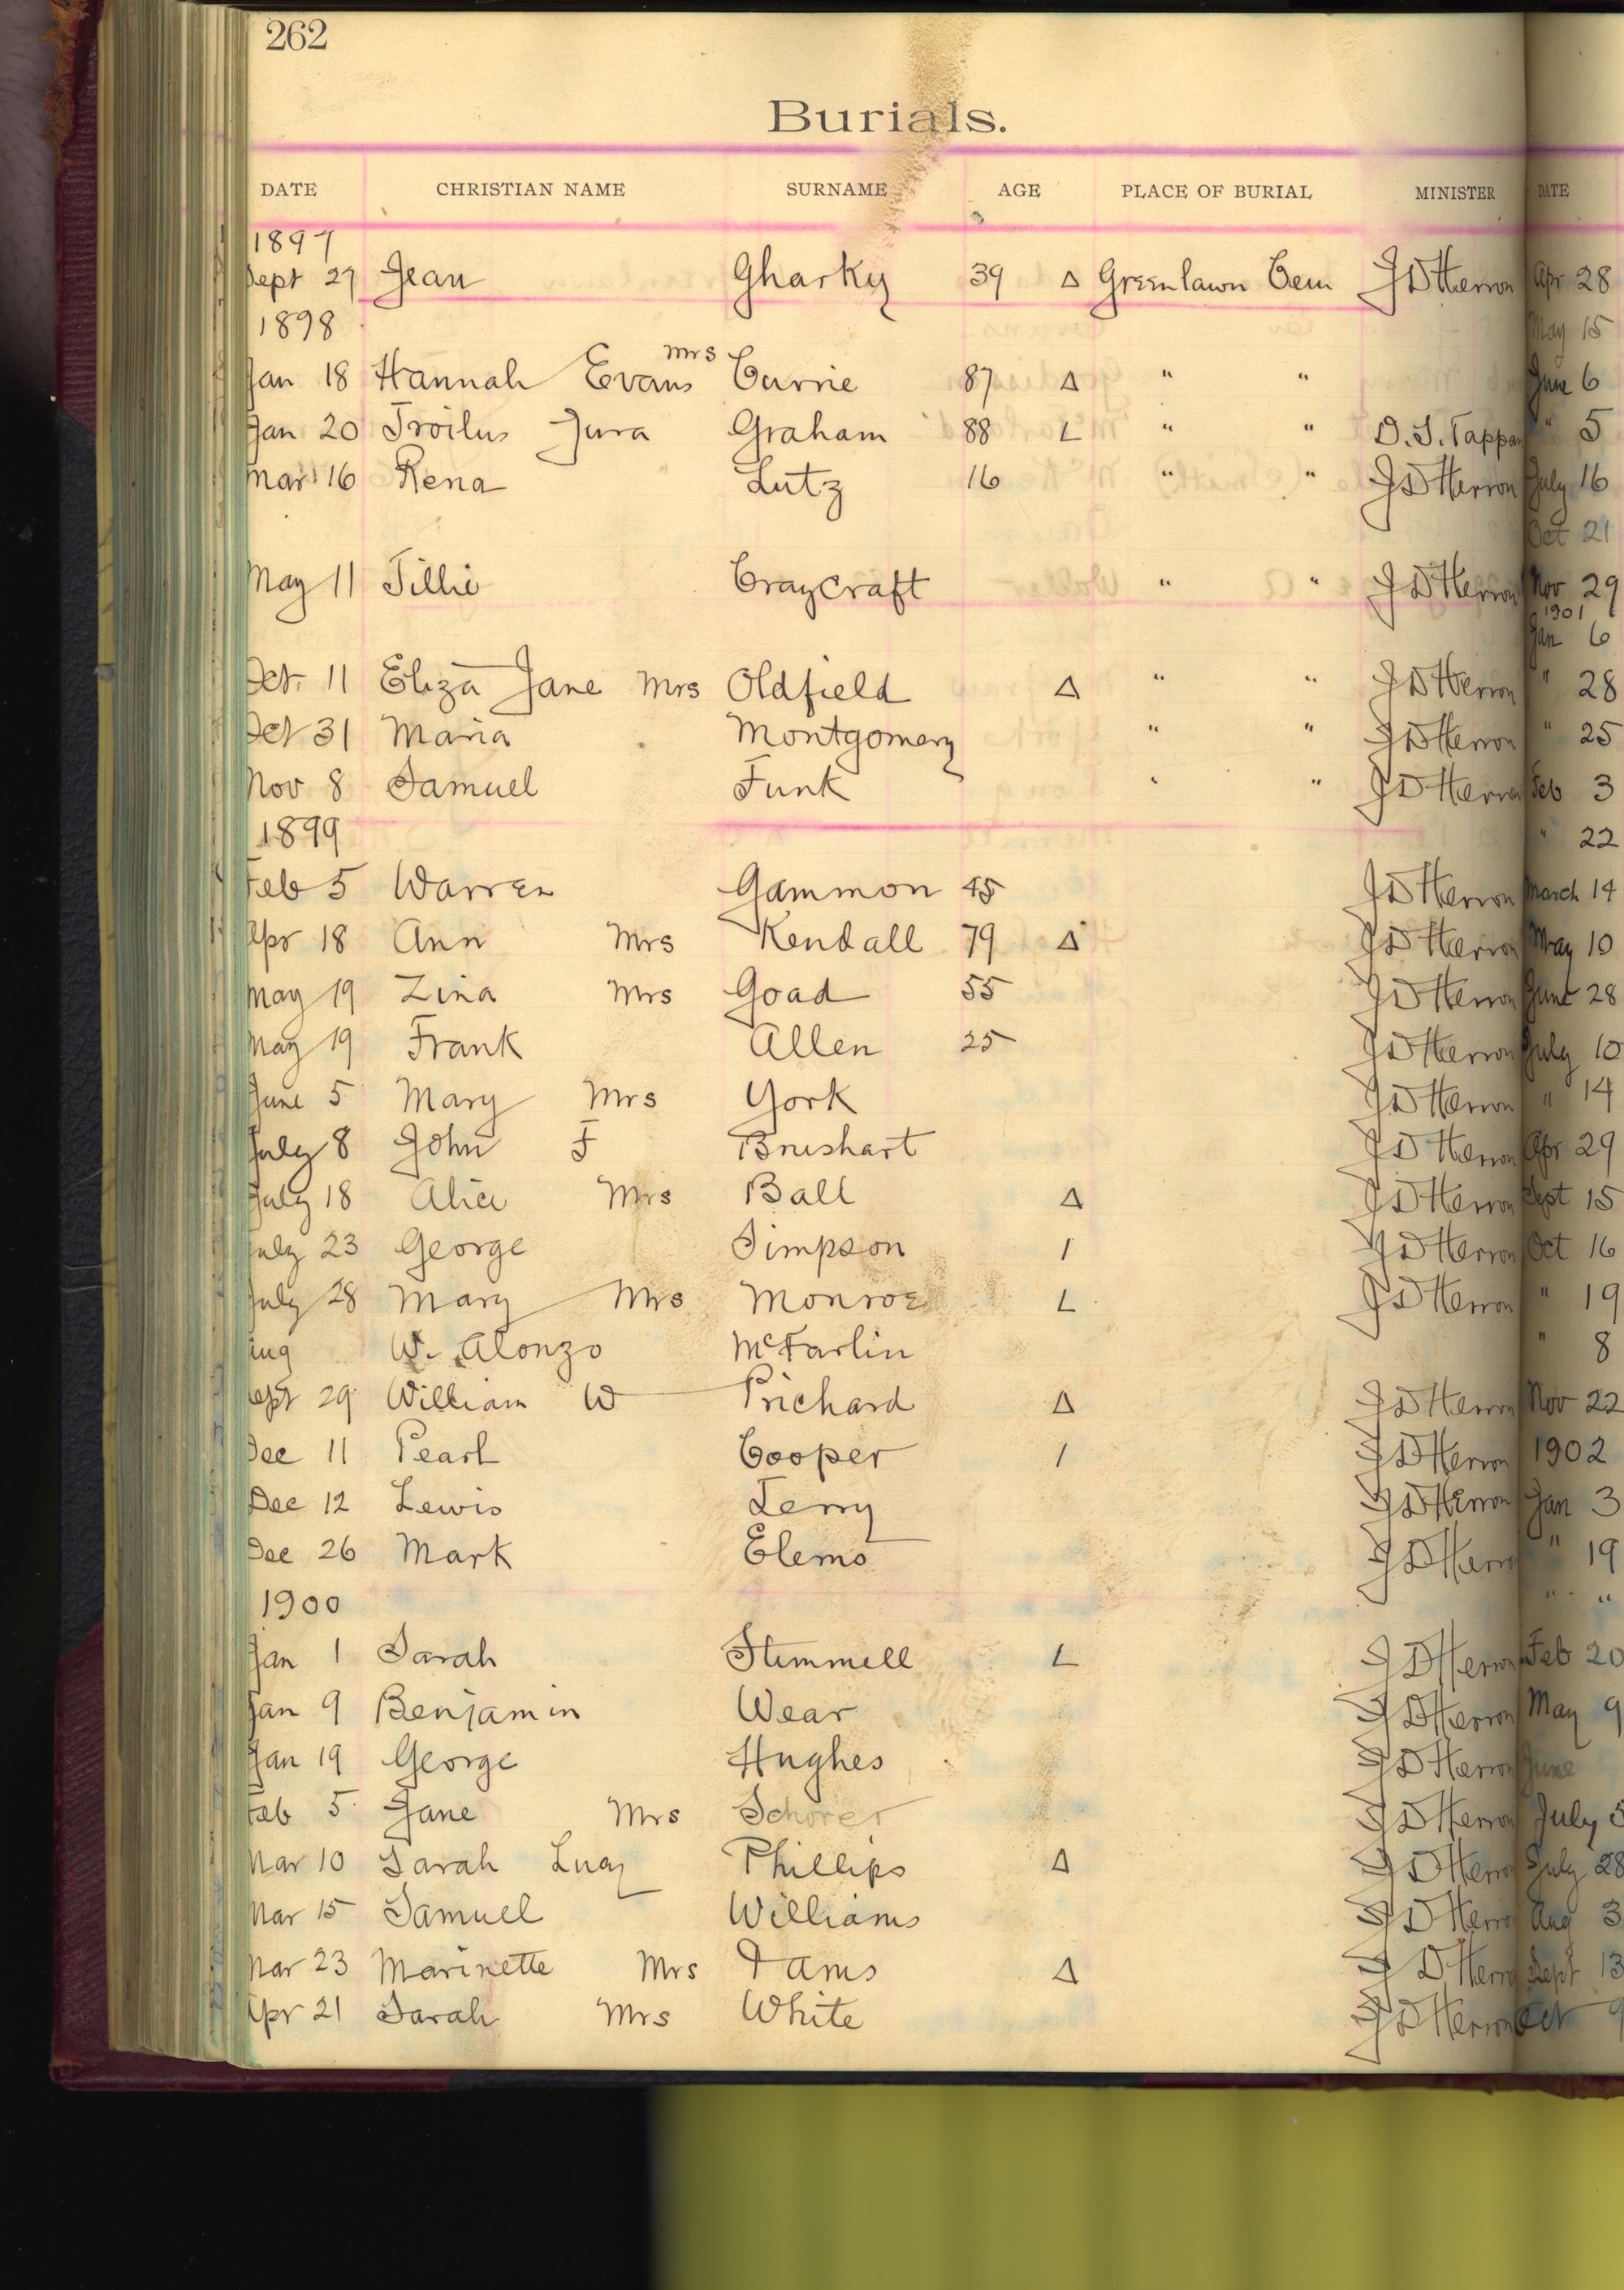 262
Burials.
DATE CHRISTIAN NAME SURNAME AGE PLACE OF BURIAL MINISTER DATE
1897
Sept 27 Jean Gharky 39 Δ Greenlawn Cem J D Herron Apr 28
1898 May 15
Jan 18 Hannah Evans Mrs Currie 87 Δ " " June 6
Jan 20 Troilus Jura Graham 88 L " " D. S. Tappan " 5
Mar 16 Rena Lutz 16 " " J D Herron July 16
Oct 21
May 11 Tillie Craycraft " " J D Herron Nov 29
1901
Jan 6
Oct. 11 Eliza Jane Mrs Oldfield Δ " " J D Herron " 28
Oct 31 Maria Montgomery " " J D Herron " 25
Nov 8 Samuel Funk " " J D Herron Feb 3
1899 " 22
Feb 5 Warren Gammon 45 J D Herron March 14
Apr 18 Ann Mrs Kendall 79 Δ J D Herron May 10
May 19 Zina Mrs Goad 55 J D Herron June 28
May 19 Frank Allen 25 J D Herron July 10
June 5 Mary Mrs York J D Herron " 14
July 8 John F Brushart J D Herron Apr 29
July 18 Alice Mrs Ball Δ J D Herron Sept 15
July 23 George Simpson / J D Herron Oct 16
July 28 Mary Mrs Monroe L J D Herron " 19
Aug W. Alonzo McFarlin " 8
Sept 29 William W Prichard Δ J D Herron Nov 22
Dec 11 Pearl Cooper / J D Herron 1902
Dec 12 Lewis Terry J D Herron Jan 3
Dec 26 Mark Elems J D Herron " 19
1900 " "
Jan 1 Sarah Stemmell L J D Herron Feb 20
Jan 9 Benjamin Wear J D Herron May 9
Jan 19 George Hughes J D Herron June
Feb 5 Jane Mrs Schorer J D Herron July 5
Mar 10 Sarah Lucy Phillips Δ J D Herron July 28
Mar 15 Samuel Williams J D Herron Aug 3
Mar 23 Marinette Mrs Δ J D Herron Sept 13
Apr 21 Sarah Mrs White J D Herron Oct 9